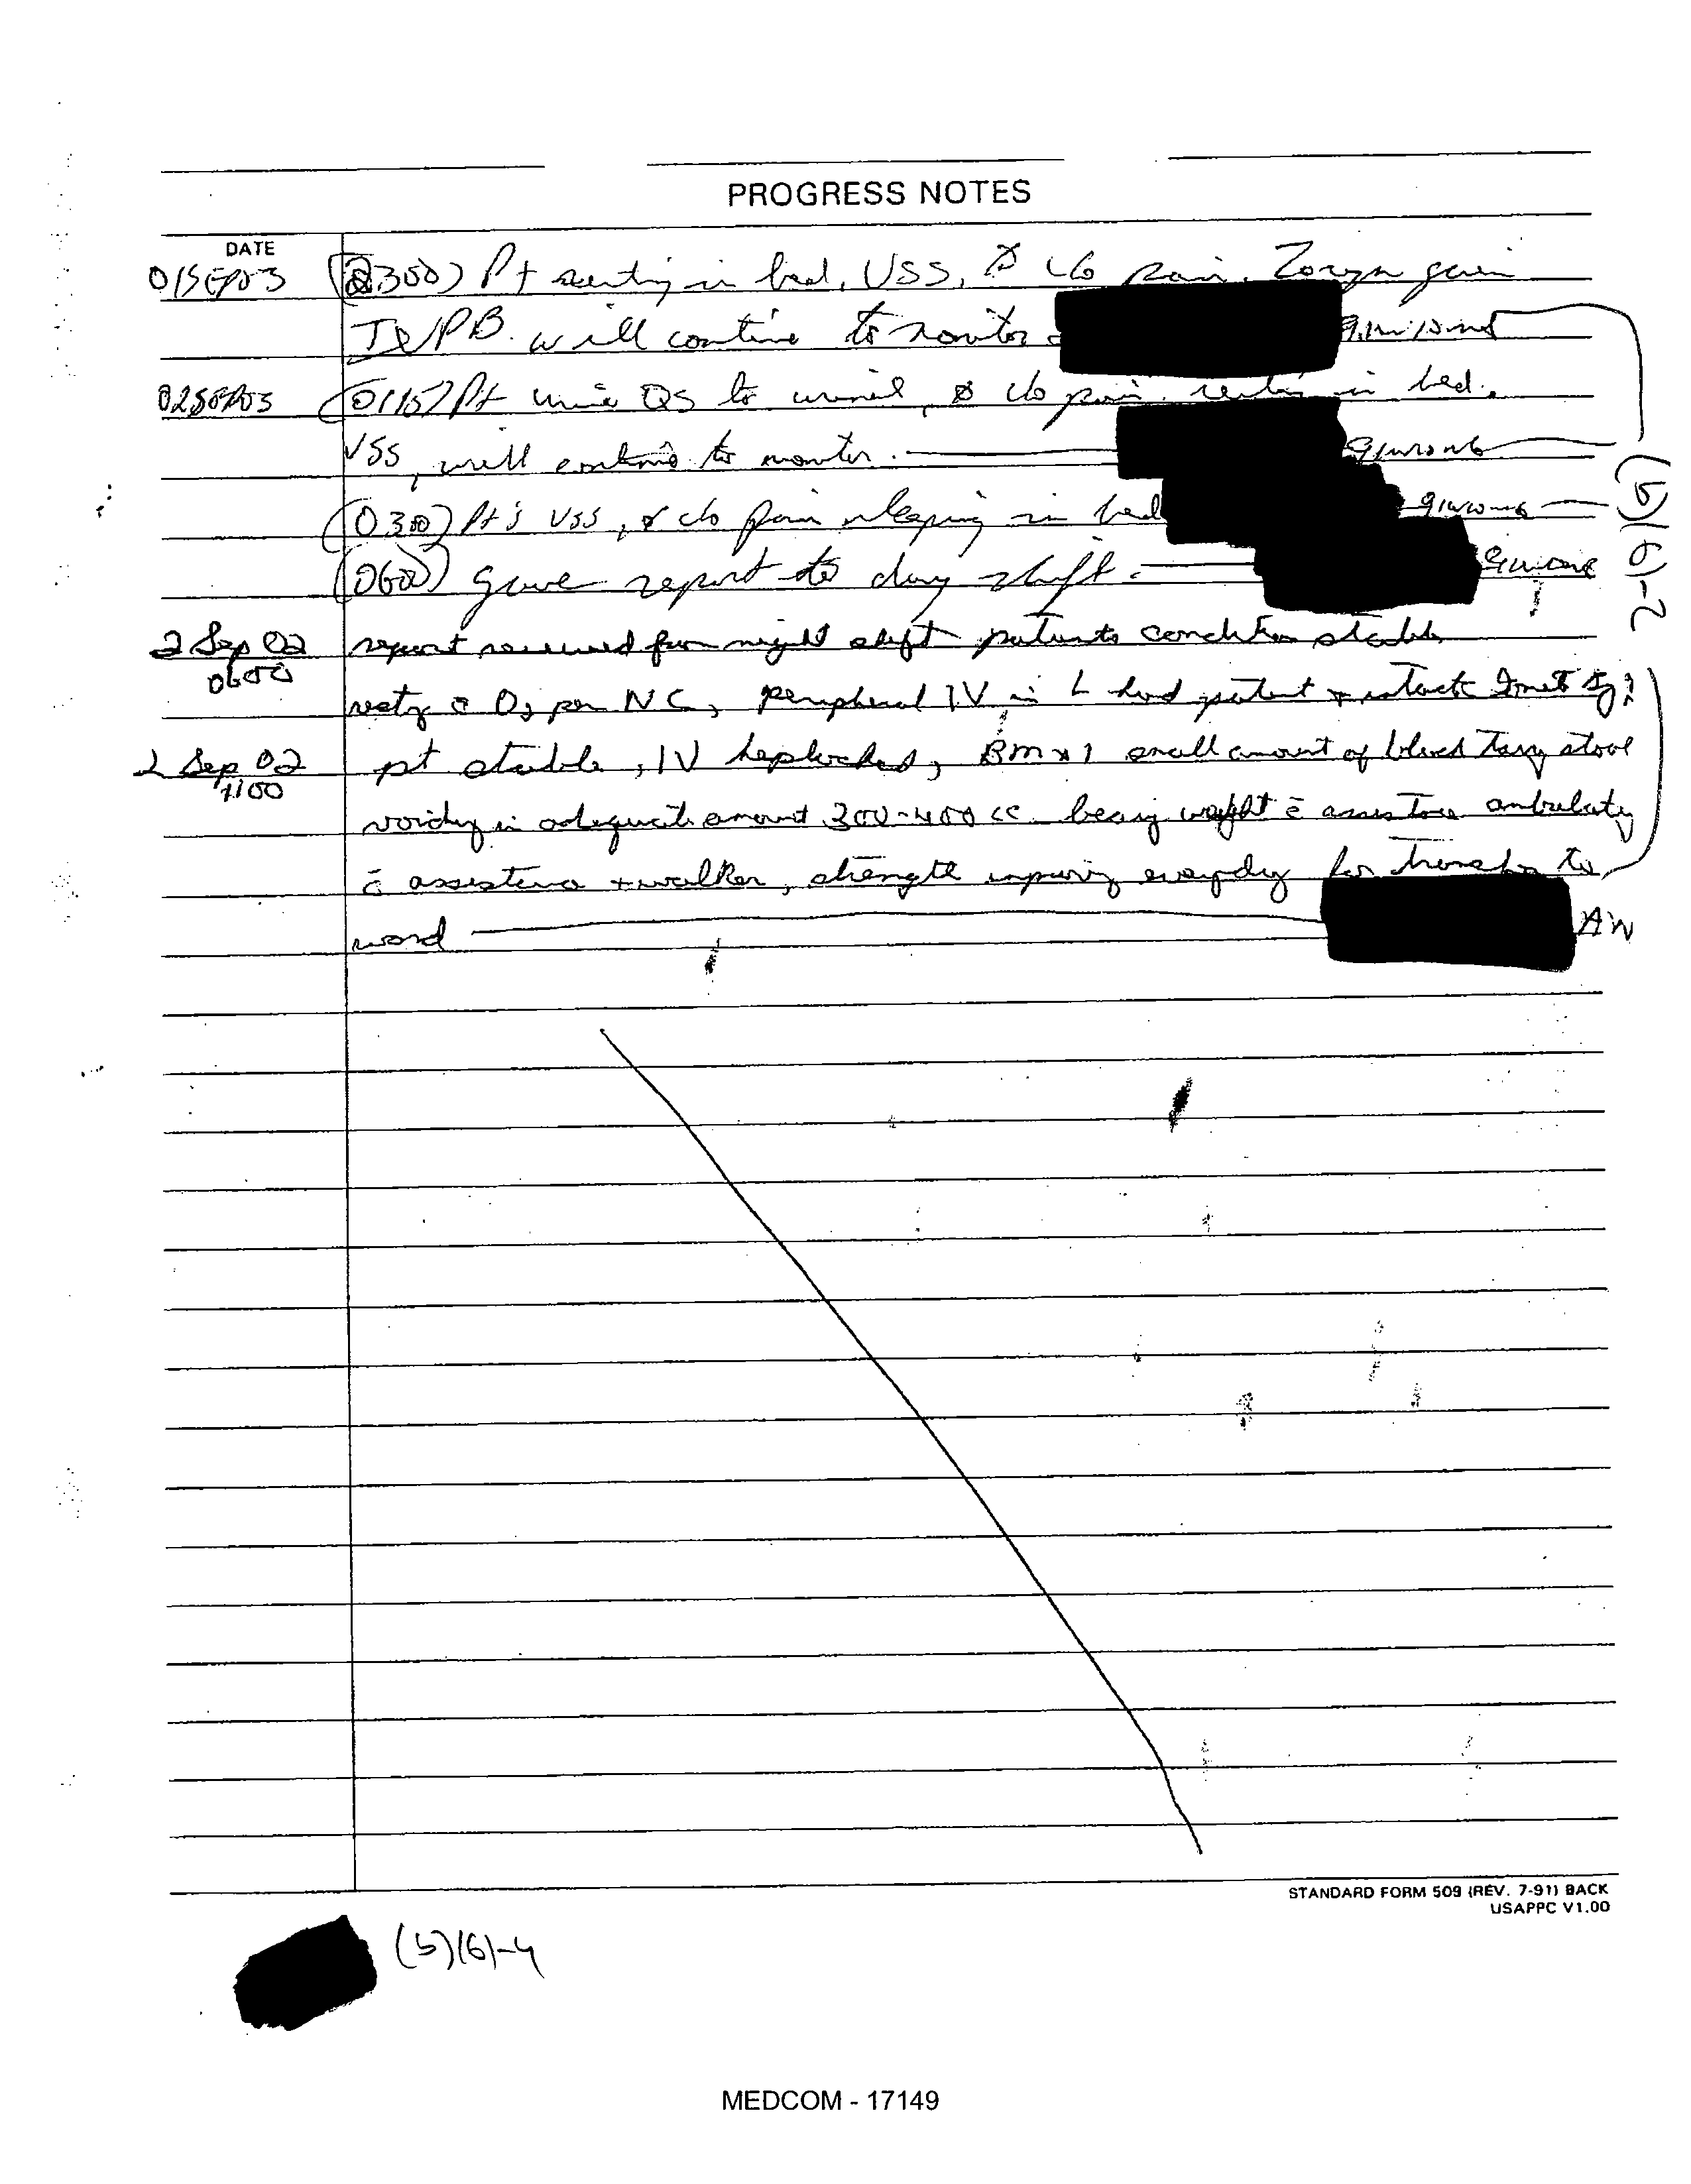 PROGRESS NOTES
DATE
01SEP03 (2300) Pt resting in bed, VSS, ø c/o pain. Zosyn given
IVPB. will continue to monitor
02SEP03 (0115) Pt urine QS to urinal, ø c/o pain. resting in bed.
VSS, will continue to monitor.
(0300) Pt's VSS, ø c/o pain sleeping in bed
(0600) gave report to day shift.
2 Sep 02 report received from night shift patients condition stable
0600
resting c̄ O2 per NC, peripheral IV in L hand patent + intact
2 Sep 02 pt stable, IV heplocked, BM x 1 small amount of black tarry stool
1100
voiding in adequate amount 300-400 cc bearing weight c̄ assistance ambulating
c̄ assistance + walker, strength improving everyday for transfer to
ward AN
(b)(6)-2
STANDARD FORM 509 (REV. 7-91) BACK
USAPPC V1.00
(b)(6)-4
MEDCOM - 17149